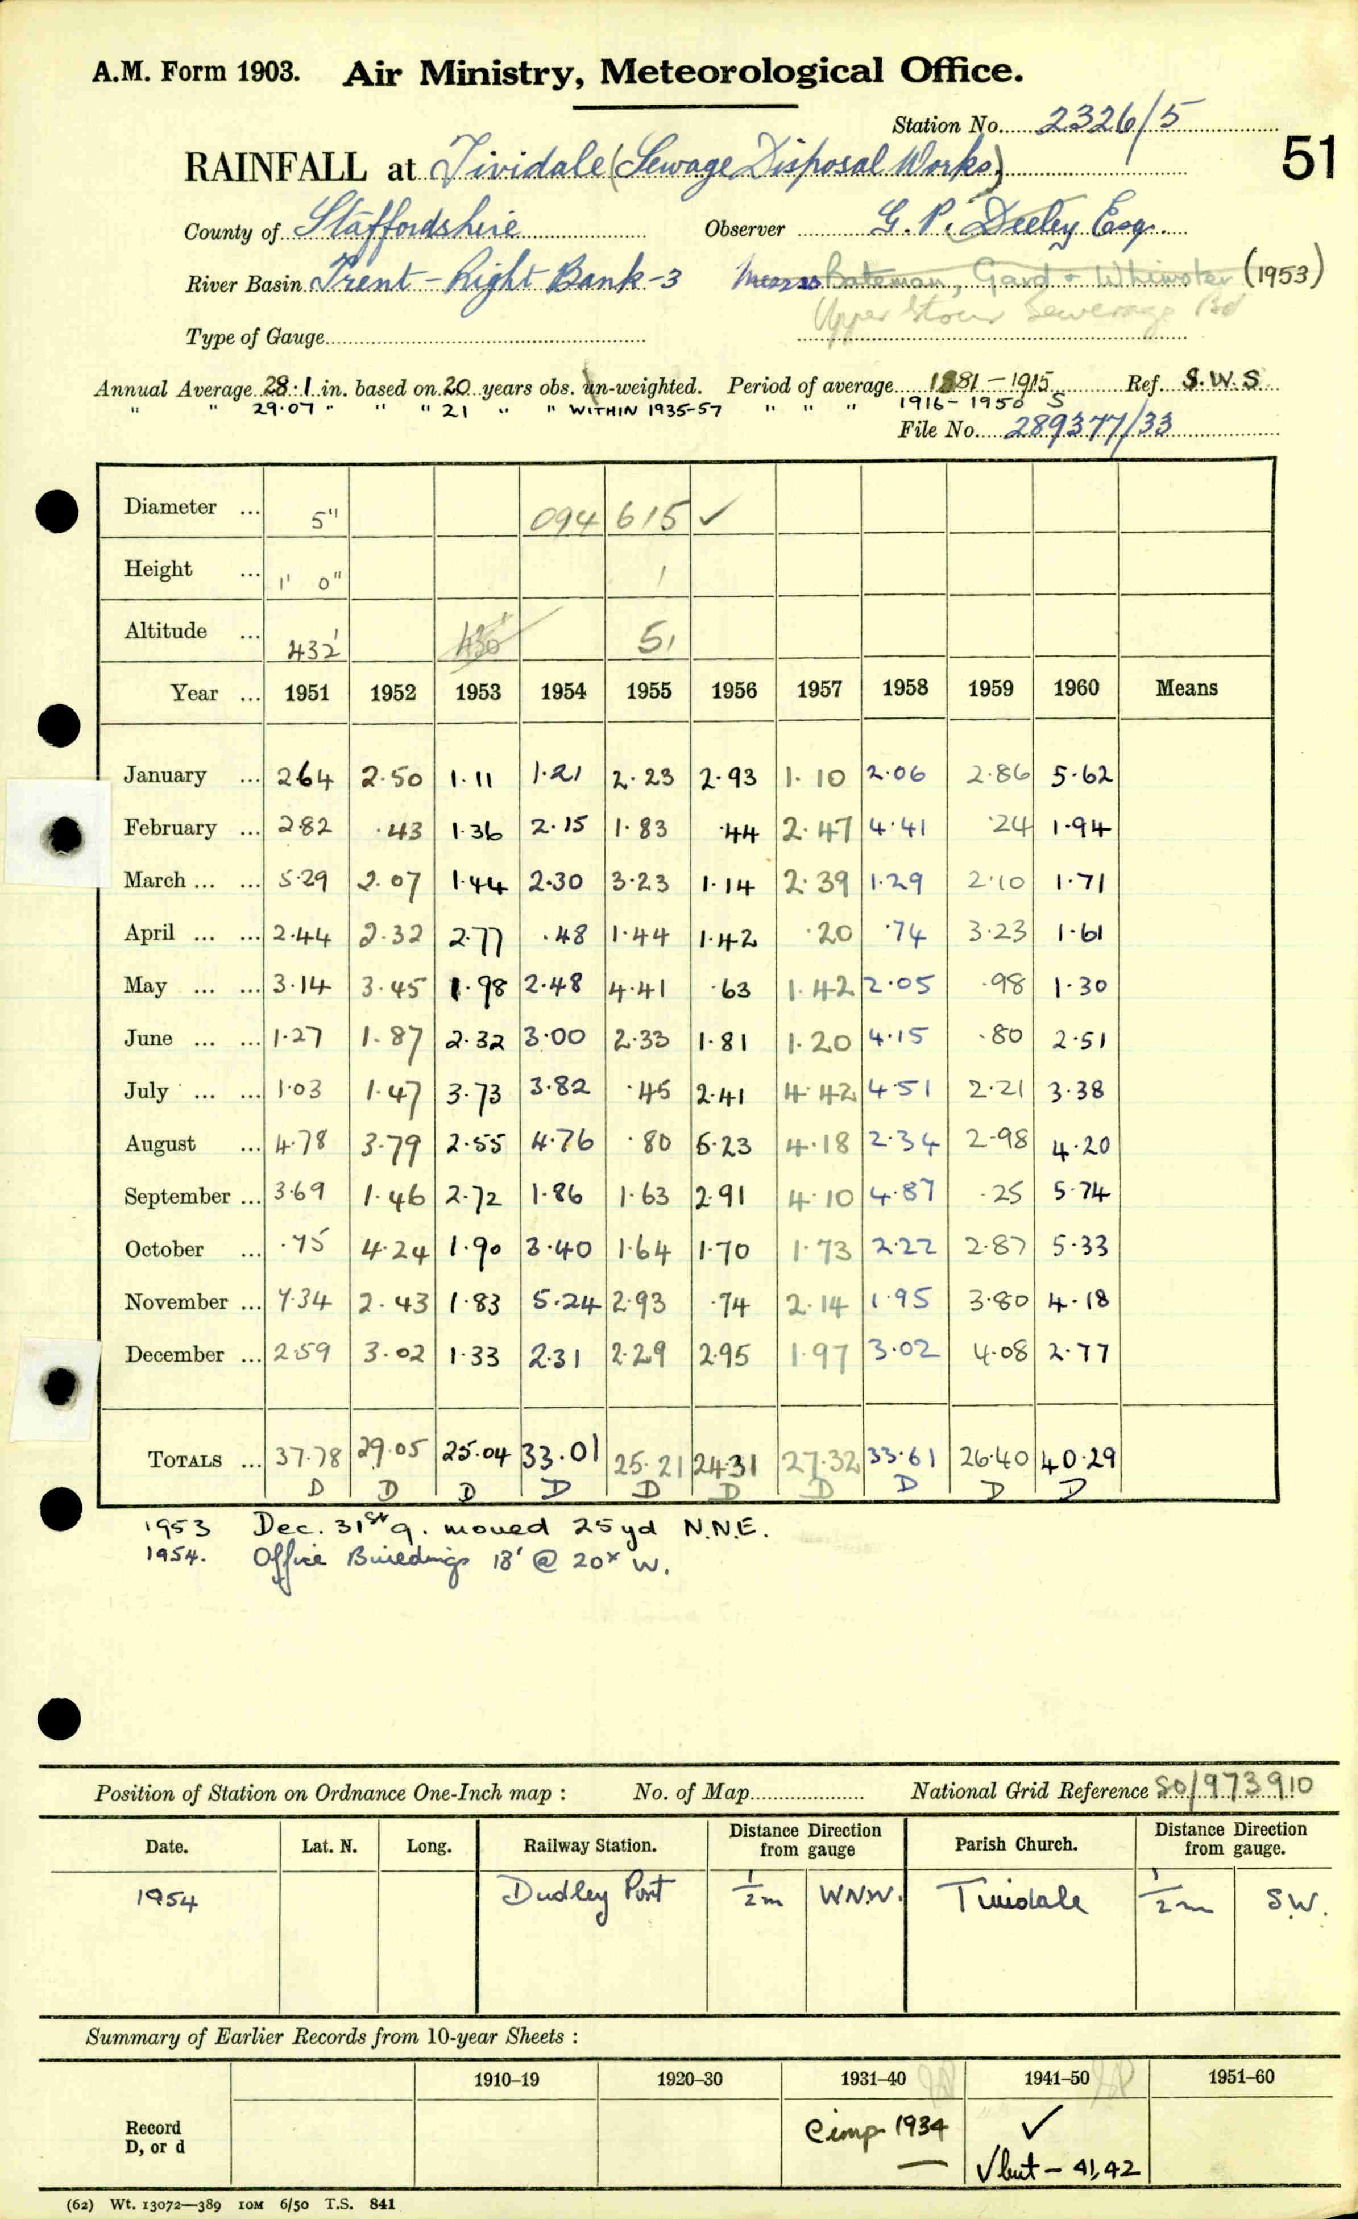 A.M. Form 1903. Air Ministry, Meteorological Office.
Station No. 2326/5
51
RAINFALL at Tividale (Sewage Disposal Works)
County of Staffordshire Observer G. P. Deeley Esq.
River Basin Trent - Right Bank - 3 Messrs Bateman, Gard & Whimster (1953)
Upper Stour Sewerage Bd
Type of Gauge
Annual Average 28.1 in. based on 20 years obs. un-weighted. Period of average 1881-1915 Ref. S.W.S
" " 29.07 " " " 21 " " WITHIN 1935-57 " " " 1916-1950 S
File No. 289377/33
Diameter ... 5" 094 615 ✓
Height ... 1' 0"
Altitude ... 432' 430' 51
Year ... 1951 1952 1953 1954 1955 1956 1957 1958 1959 1960 Means
January ... 2.64 2.50 1.11 1.21 2.23 2.93 1.10 2.06 2.86 5.62
February ... 2.82 .43 1.36 2.15 1.83 .44 2.47 4.41 .24 1.94
March ... ... 5.29 2.07 1.44 2.30 3.23 1.14 2.39 1.29 2.10 1.71
April ... ... 2.44 2.32 2.77 .48 1.44 1.42 .20 .74 3.23 1.61
May ... ... 3.14 3.45 1.98 2.48 4.41 .63 1.42 2.05 .98 1.30
June ... ... 1.27 1.87 2.32 3.00 2.33 1.81 1.20 4.15 .80 2.51
July ... ... 1.03 1.47 3.73 3.82 .45 2.41 4.42 4.51 2.21 3.38
August ... 4.78 3.79 2.55 4.76 .80 5.23 4.18 2.34 2.98 4.20
September ... 3.69 1.46 2.72 1.86 1.63 2.91 4.10 4.87 .25 5.74
October ... .75 4.24 1.90 3.40 1.64 1.70 1.73 2.22 2.87 5.33
November ... 7.34 2.43 1.83 5.24 2.93 .74 2.14 1.95 3.80 4.18
December ... 2.59 3.02 1.33 2.31 2.29 2.95 1.97 3.02 4.08 2.77
TOTALS ... 37.78 29.05 25.04 33.01 25.21 24.31 27.32 33.61 26.40 40.29
D D D D D D D D D D
1953 Dec. 31st g. moved 25yd N.N.E.
1954. Office Buildings 18' @ 20x W.
Position of Station on Ordnance One-Inch map : No. of Map National Grid Reference SO/973910
Date. Lat. N. Long. Railway Station. Distance Direction from gauge Parish Church. Distance Direction from gauge.
1954 Dudley Port 1/2 m W.N.W. Tividale 1/2 m S.W.
Summary of Earlier Records from 10-year Sheets :
1910–19 1920–30 1931–40 1941–50 1951–60
Record D, or d Comp 1934 ✓
✓ but - 41,42
(62) Wt. 13072—389 10M 6/50 T.S. 841